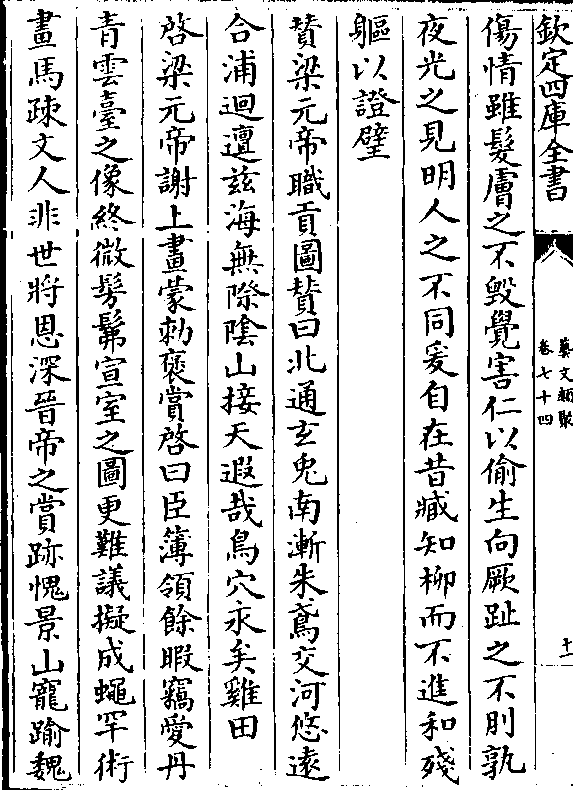 欽定四庫全書
藝文類聚
卷七十四
十一
傷情雖髮膚之不毀覺害仁以偷生向厥趾之不刖孰
夜光之見明人之不同爰自在昔臧知柳而不進和殘
軀以證璧
贊梁元帝職貢圖贊曰北通玄兔南漸朱鳶交河悠遠
合浦迴邅兹海無際隂山接天遐哉鳥穴永矣雞田
啓梁元帝謝上畫蒙勅褒賞啓曰臣簿領餘暇竊愛丹
青雲臺之像終微髣髴宣室之圖更難議擬成蠅罕術
畫馬疎文人非世將恩深晉帝之賞跡愧景山寵踰魏